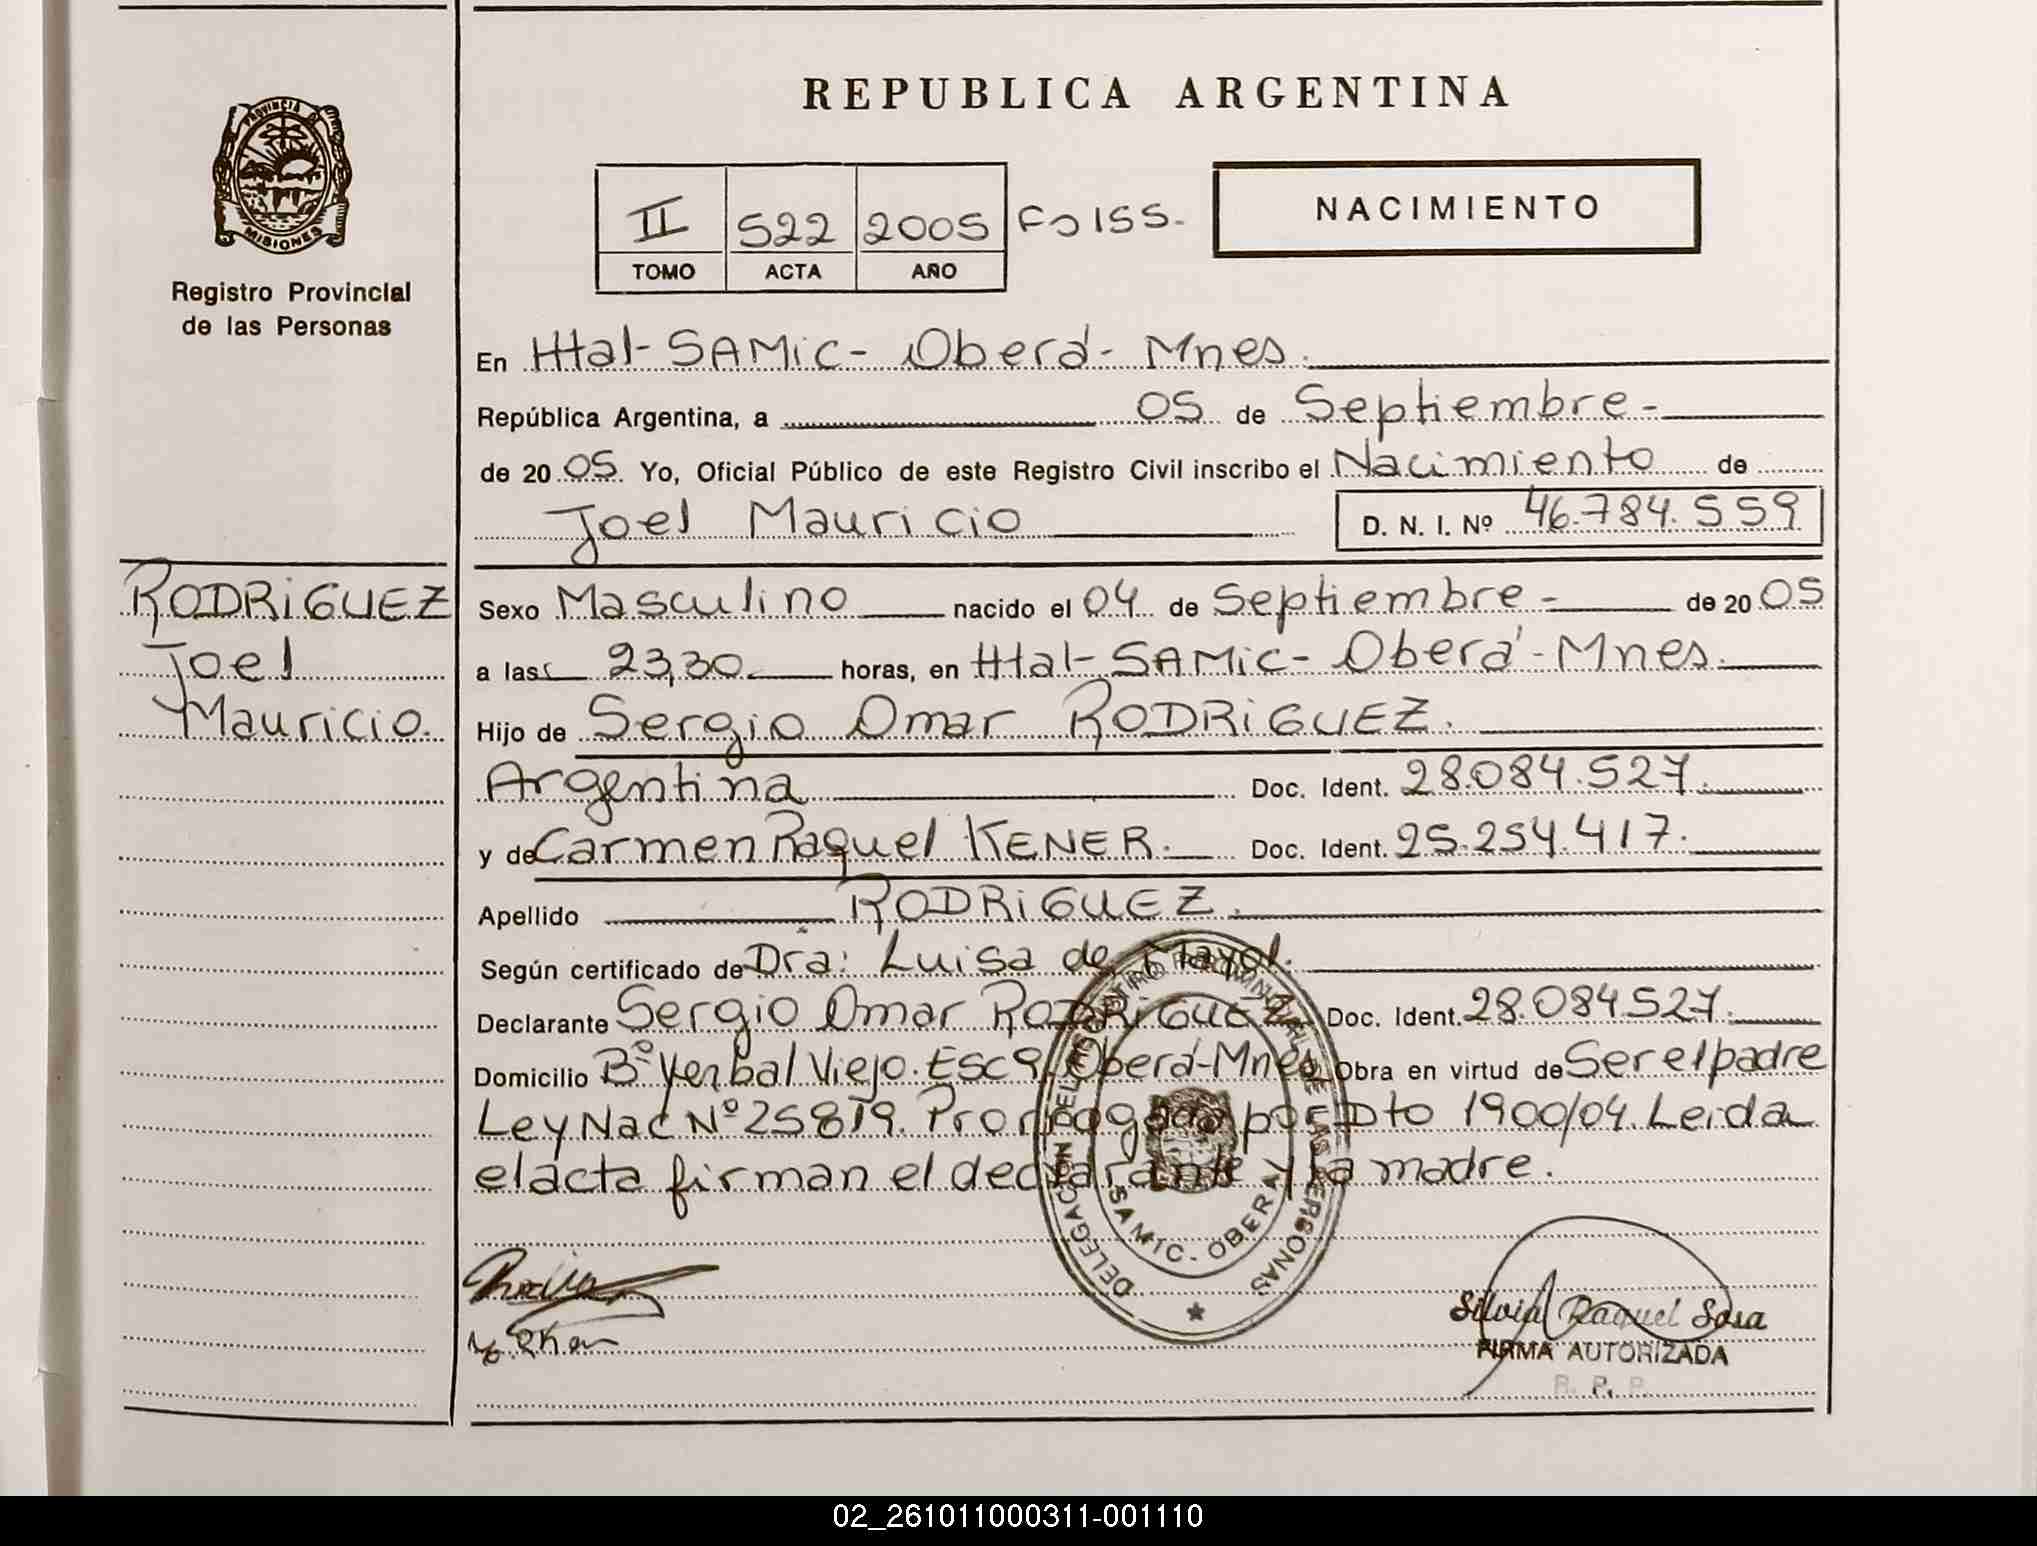 REPUBLICA ARGENTINA
PROVINCIA D
MISIONES
Registro Provincial
de las Personas
II 522 2005 Fo 155.
TOMO ACTA AÑO
NACIMIENTO
En Htal-SAMic- Oberá- Mnes.
República Argentina, a 05 de Septiembre-
de 2005. Yo, Oficial Público de este Registro Civil inscribo el Nacimiento de
Joel Mauricio D. N. I. Nº 46.784.559
RODRIGUEZ
Joel
Mauricio.
Sexo Masculino nacido el 04 de Septiembre- de 2005
a las 23,30 horas, en Htal-SAMic- Oberá-Mnes.
Hijo de Sergio Omar RODRIGUEZ.
Argentina Doc. Ident. 28.084.527.
y de Carmen Raquel KENER. Doc. Ident. 25.254.417.
Apellido RODRIGUEZ.
Según certificado de Dra: Luisa de Mayol.
Declarante Sergio Omar RODRIGUEZ Doc. Ident. 28.084.527.
Domicilio Bº Yerbal Viejo. Esc 9. Oberá-Mnes. Obra en virtud de Ser el padre
Ley Nac Nº 25819. Prorrogada por Dto 1900/04. Leida
el acta firman el declarante y la madre.
DELEGACION DEL REGISTRO PROVINCIAL DE LAS PERSONAS
SAMIC - OBERA
Silvia Raquel Sosa
FIRMA AUTORIZADA
R. P. P.
02_261011000311-001110